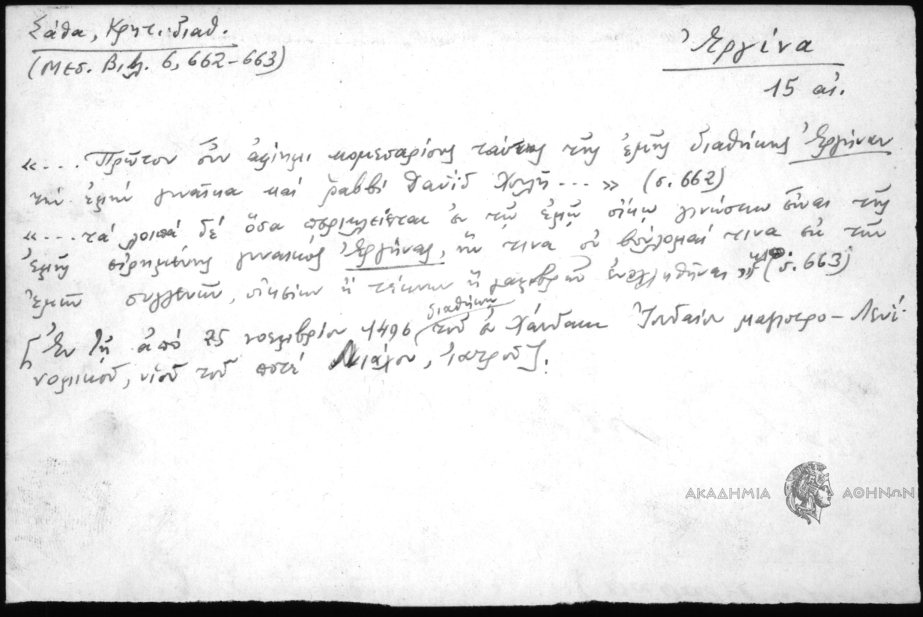 Σάθα, Κρητ. διαθ.
(Μεσ. Βιβλ. 6, 662-663)
Ἐργίνα
15 αἰ.
«... Πρῶτον οὖν ἀφίημι κομεσαρίους ταύτης τῆς ἐμῆς διαθήκης Ἐργίναν
τὴν ἐμὴν γυναῖκα καὶ ῥαββὶ Δαυῒδ ...» (σ. 662)
«... τὰ λοιπὰ δὲ ὅσα περικλείεται ἐν τῷ ἐμῷ οἴκῳ γινώσκω εἶναι τῆς
ἐμῆς εἰρημένης γυναικὸς Ἐργίνας, ἥν τινα οὐ βούλομαί τινα ἐκ τῶν
ἐμῶν συγγενῶν, οἰκείων ἢ τέκνων ἢ γαμβρῶν ἐνοχληθῆναι» (σ. 663)
[Ἐν τῇ ἀπὸ 25 νοεμβρίου 1496 διαθήκῃ τοῦ ἐν Χάνδακι Ἰουδαίου μαΐστρο-Λενί-
νομικοῦ, υἱοῦ τοῦ ποτὲ ἰατροῦ].
ΑΚΑΔΗΜΙΑ ΑΘΗΝΩΝ